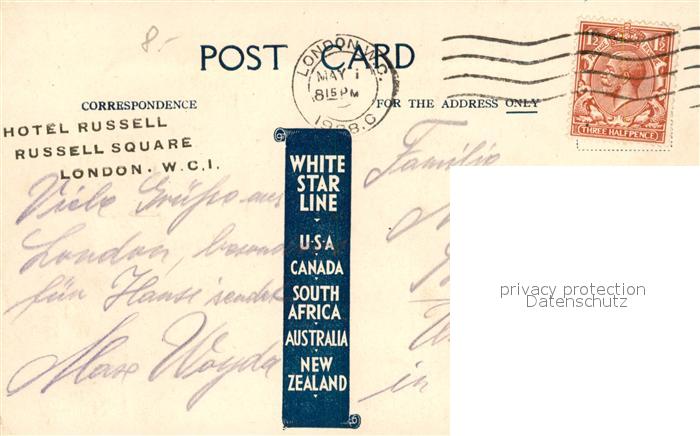 8.-
POST CARD
LONDON. W.C.
MAY 1
8 15 PM
1928. C
1½ 1½
THREE HALFPENCE
CORRESPONDENCE
FOR THE ADDRESS ONLY
HOTEL RUSSELL
RUSSELL SQUARE
LONDON. W.C.1.
WHITE
STAR
LINE
U·S·A
CANADA
SOUTH
AFRICA
AUSTRALIA
NEW
ZEALAND
Viele Grüße aus
London, besonders
für Hansi sendet
Max Woyda
Familie
in
privacy protection
Datenschutz